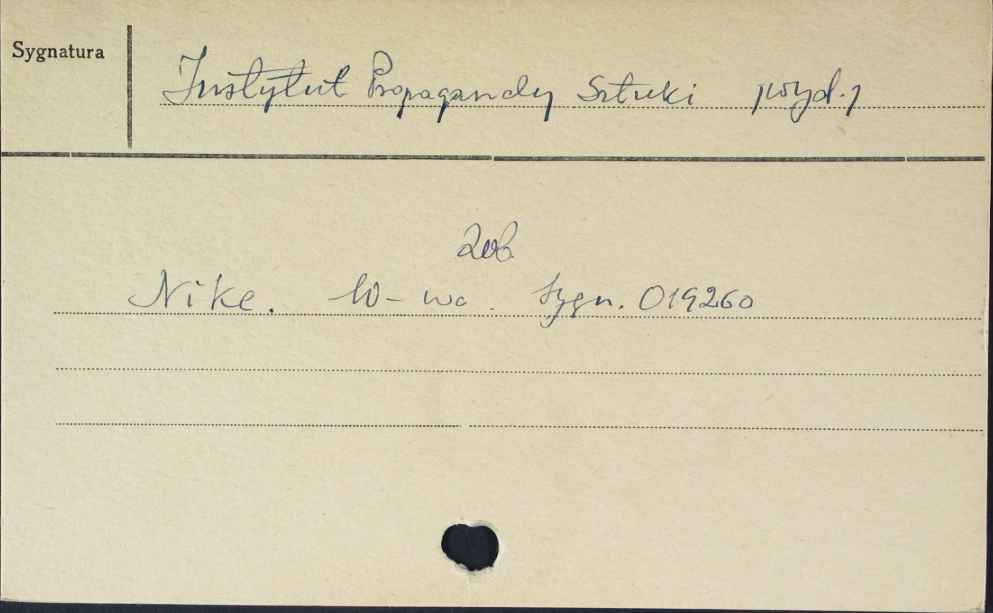 Sygnatura
Instytut Propagandy Sztuki [wyd.]
Zob.
Nike. W-wa. Sygn. 019260